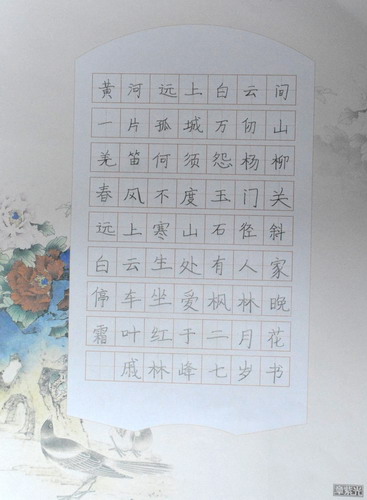 黄河远上白云间
一片孤城万仞山
羌笛何须怨杨柳
春风不度玉门关
远上寒山石径斜
白云生处有人家
停车坐爱枫林晚
霜叶红于二月花
戚林峰七岁书